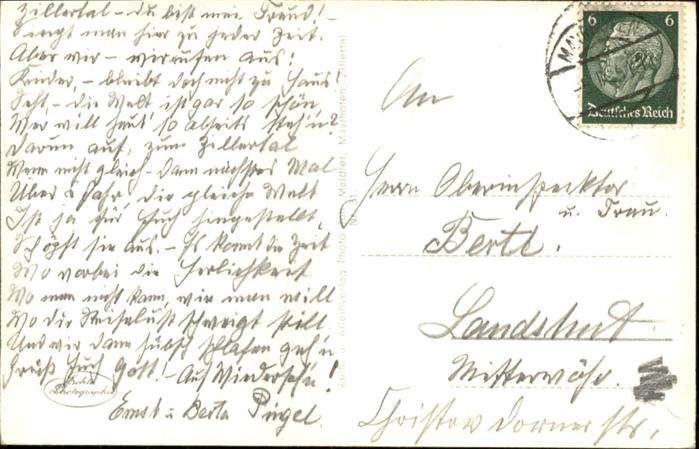 Zillertal – du best mei Freud! –
singt man hier zu jeder Zeit.
Aber wir – wir rufen aus:
Kinder, – bleibt doch nicht zu Haus!
Seht, – die Welt ist gar so schön
Wer will heut' so abseits steh'n?
Darum auf, zum Zillertal
Wenn nicht gleich – dann nächstes Mal
Über's Jahr, die gleiche Welt
Ist ja für Euch hingestellt,
Schöpft sie aus. – Es kommt die Zeit
Wo vorbei die Herlichkeit
Wo man nicht kann, wie man will
Wo die Reiselust schweigt still
Und wir dann hübsch schlafen geh'n
Grüß Euch Gott! – Auf Wiederseh'n!
Ernst u. Berta Pügel.
Echte
Photographie
6 6
Deutsches Reich
An
Herrn Oberinspecktor
u. Frau.
Bertl.
Landshut
Mitterwöhr.
Christov Dorner str.